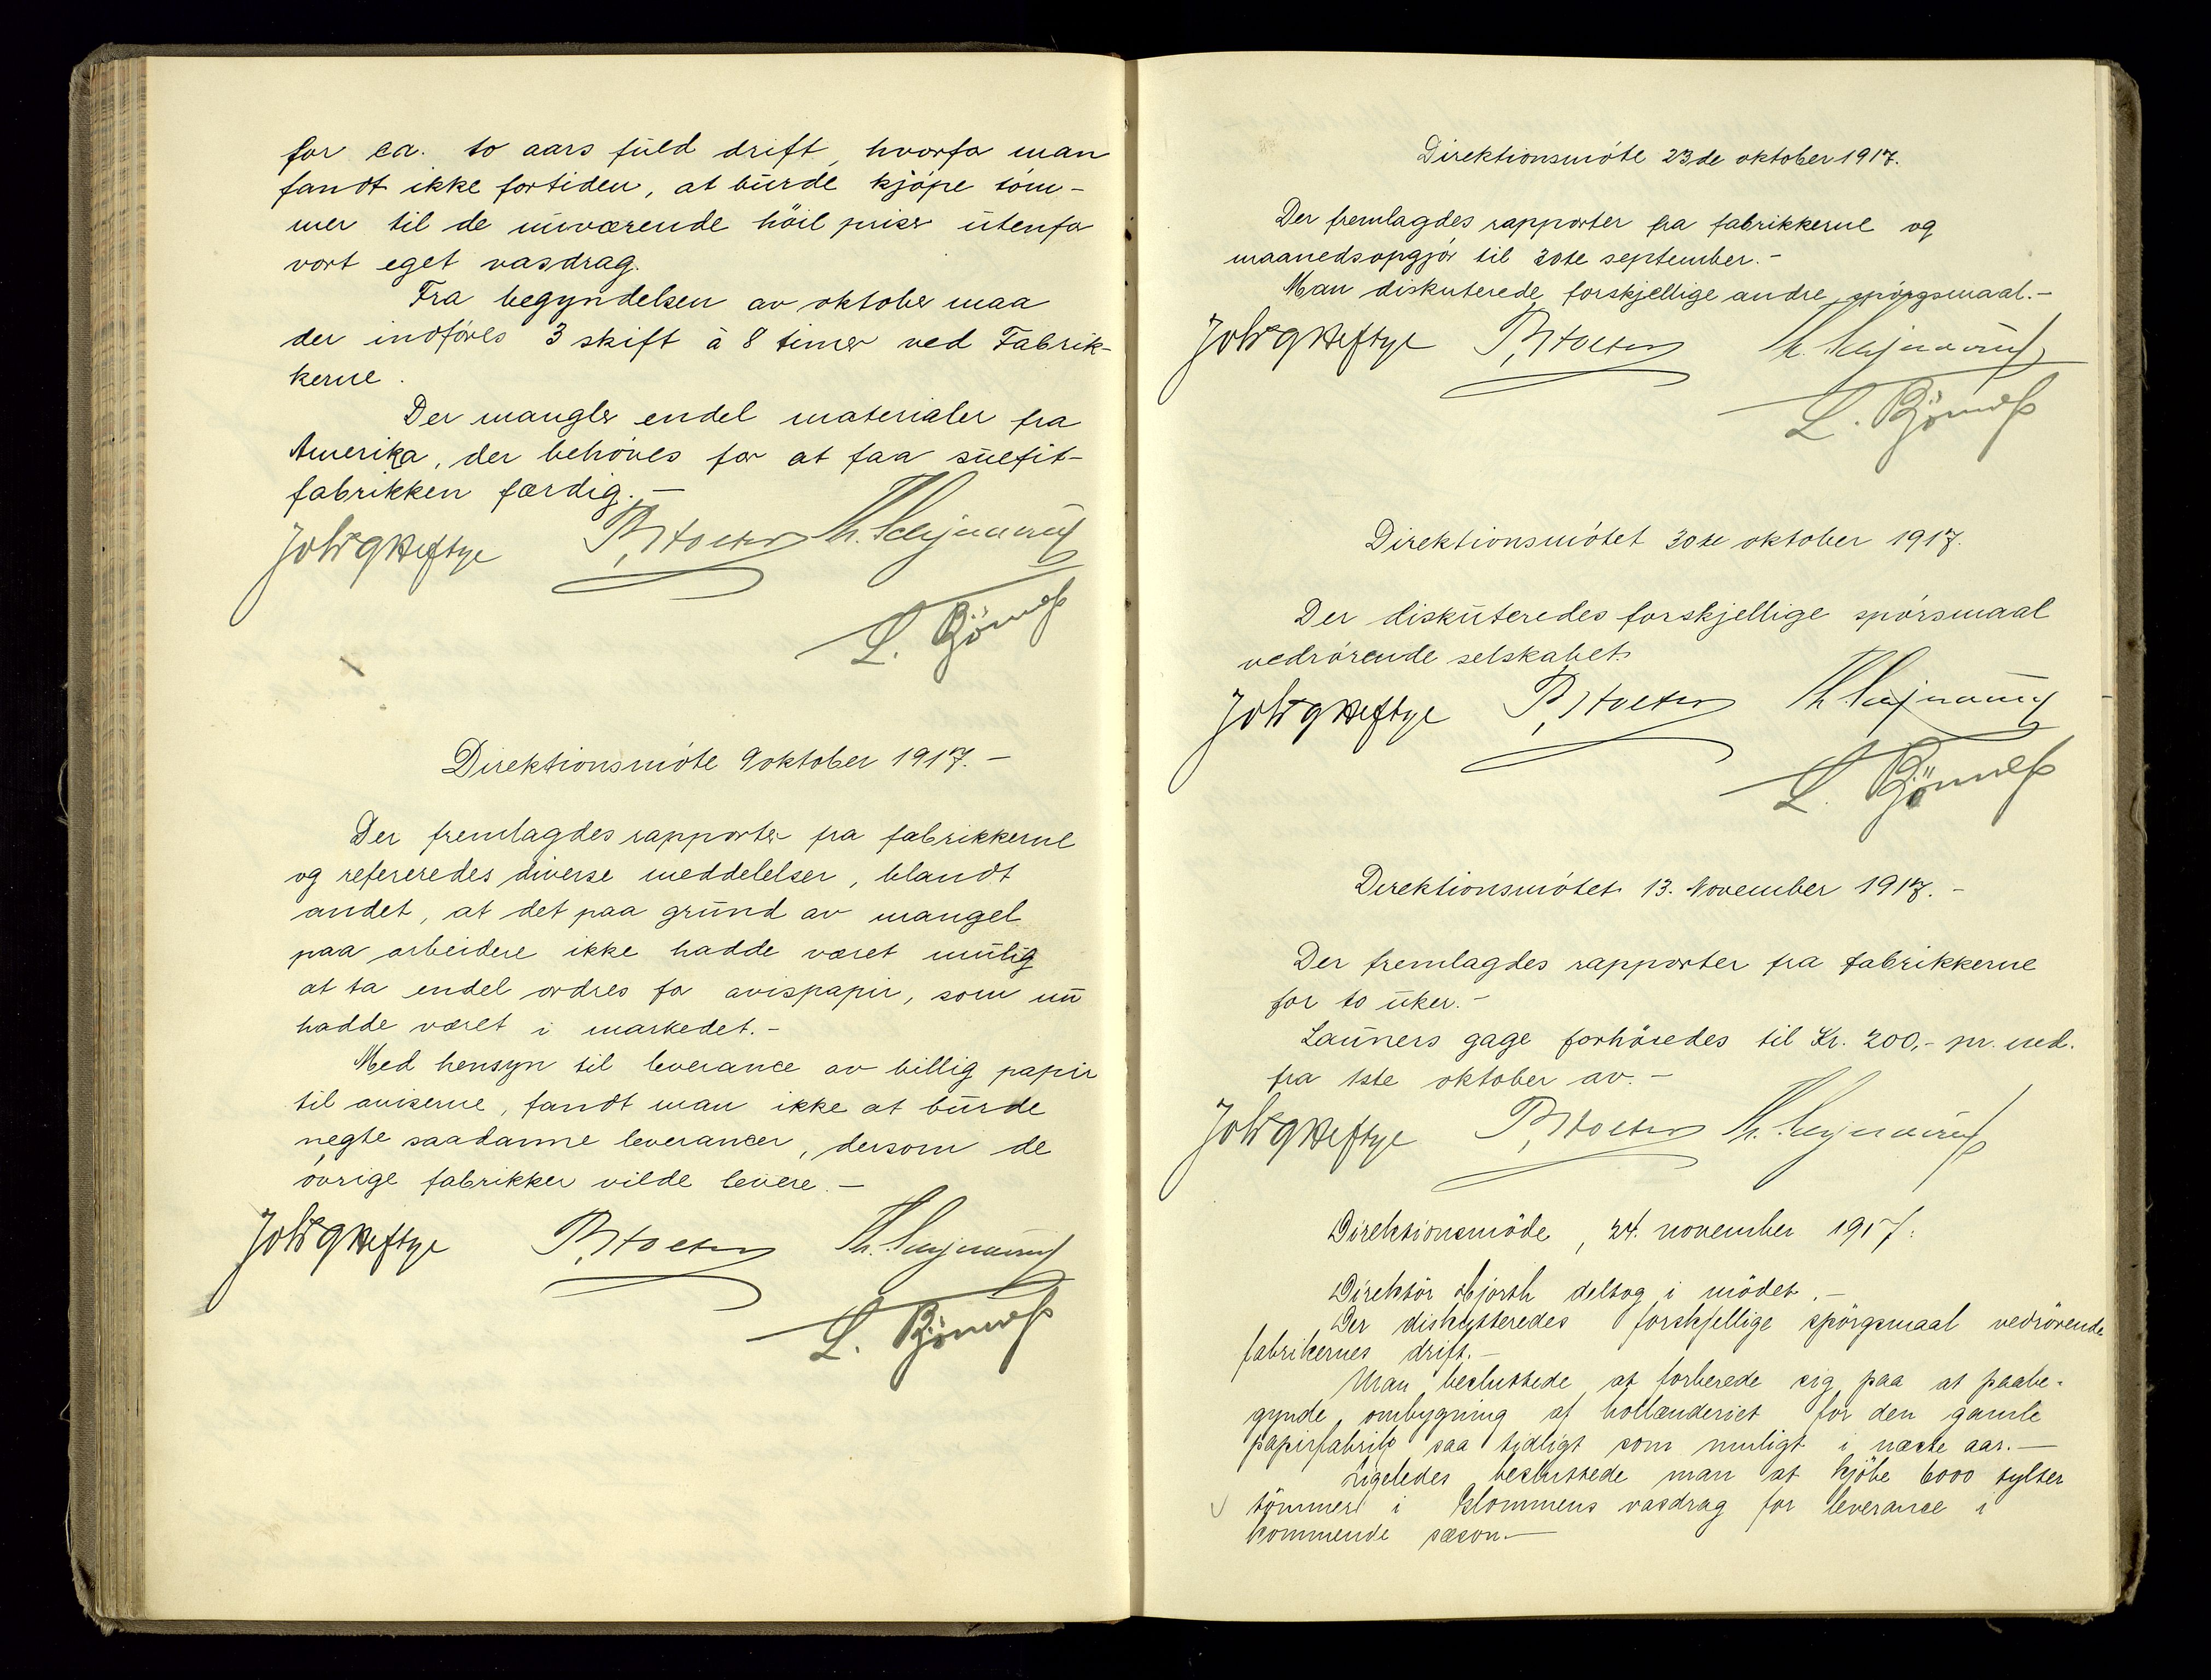 for ca. to aars fuld drift, hvorfor man
fandt ikke fortiden, at burde kjöpe töm-
mer til de nuværende höie priser utenfor
vort eget vasdrag.
Fra begyndelsen av oktober maa
der indföres 3 skift à 8 timer ved Fabrik-
kerne.
Der mangler endel materialer fra
Amerika, der behöves for at faa sulfit-
fabrikken færdig. —
Joh Heftye P. Holter
L. Björnels
Direktionsmöte 9 oktober 1917. —
Der fremlagdes rapporter fra fabrikkerne
og refereredes diverse meddelelser, blandt
andet, at det paa grund av mangel
paa arbeidere ikke hadde været mulig
at ta endel ordres for avispapir, som nu
hadde været i markedet. -
Med hensyn til leverance av billig papir
til aviserne, fandt man ikke at burde
negte saadanne leverancer, dersom de
övrige fabrikker vilde levere. —
Joh Heftye P. Holter
L. Björnels
Direktionsmöte 23de oktober 1917.
Der fremlagdes rapporter fra fabrikkerne og
maanedsopgjör til 30te september. -
Man diskuterede forskjellige andre spörgsmaal. -
Joh Heftye P. Holter
L. Björnels
Direktionsmötet 30te oktober 1917.
Der diskuteredes forskjellige spörsmaal
vedrörende selskabet.
Joh Heftye P. Holter
L. Björnels
Direktionsmötet 13. November 1917. -
Der fremlagdes rapporter fra fabrikkerne
for to uker. -
Launers gage forhöiedes til Kr. 200,- pr. md.
fra 1ste oktober av. -
Joh Heftye P. Holter
Direktionsmöde, 24. november 1917.
Direktör Hjorth deltog i mödet. —
Der diskutteredes forskjellige spörgsmaal vedrörende
fabrikernes drift. —
Man besluttede at forberede sig paa at paabe-
gynde ombygning af hollænderiet for den gamle
papirfabrik saa tidligt som muligt i næste aar. —
Ligeledes besluttede man at kjöbe 6000 tylter
tömmer i Glommens vasdrag for leverance i
kommende sæson. —